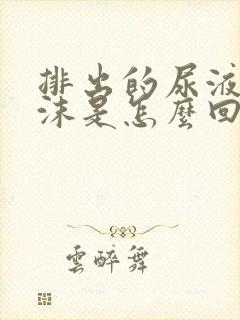 排出的尿液
沫是怎麼回
雲醉舞